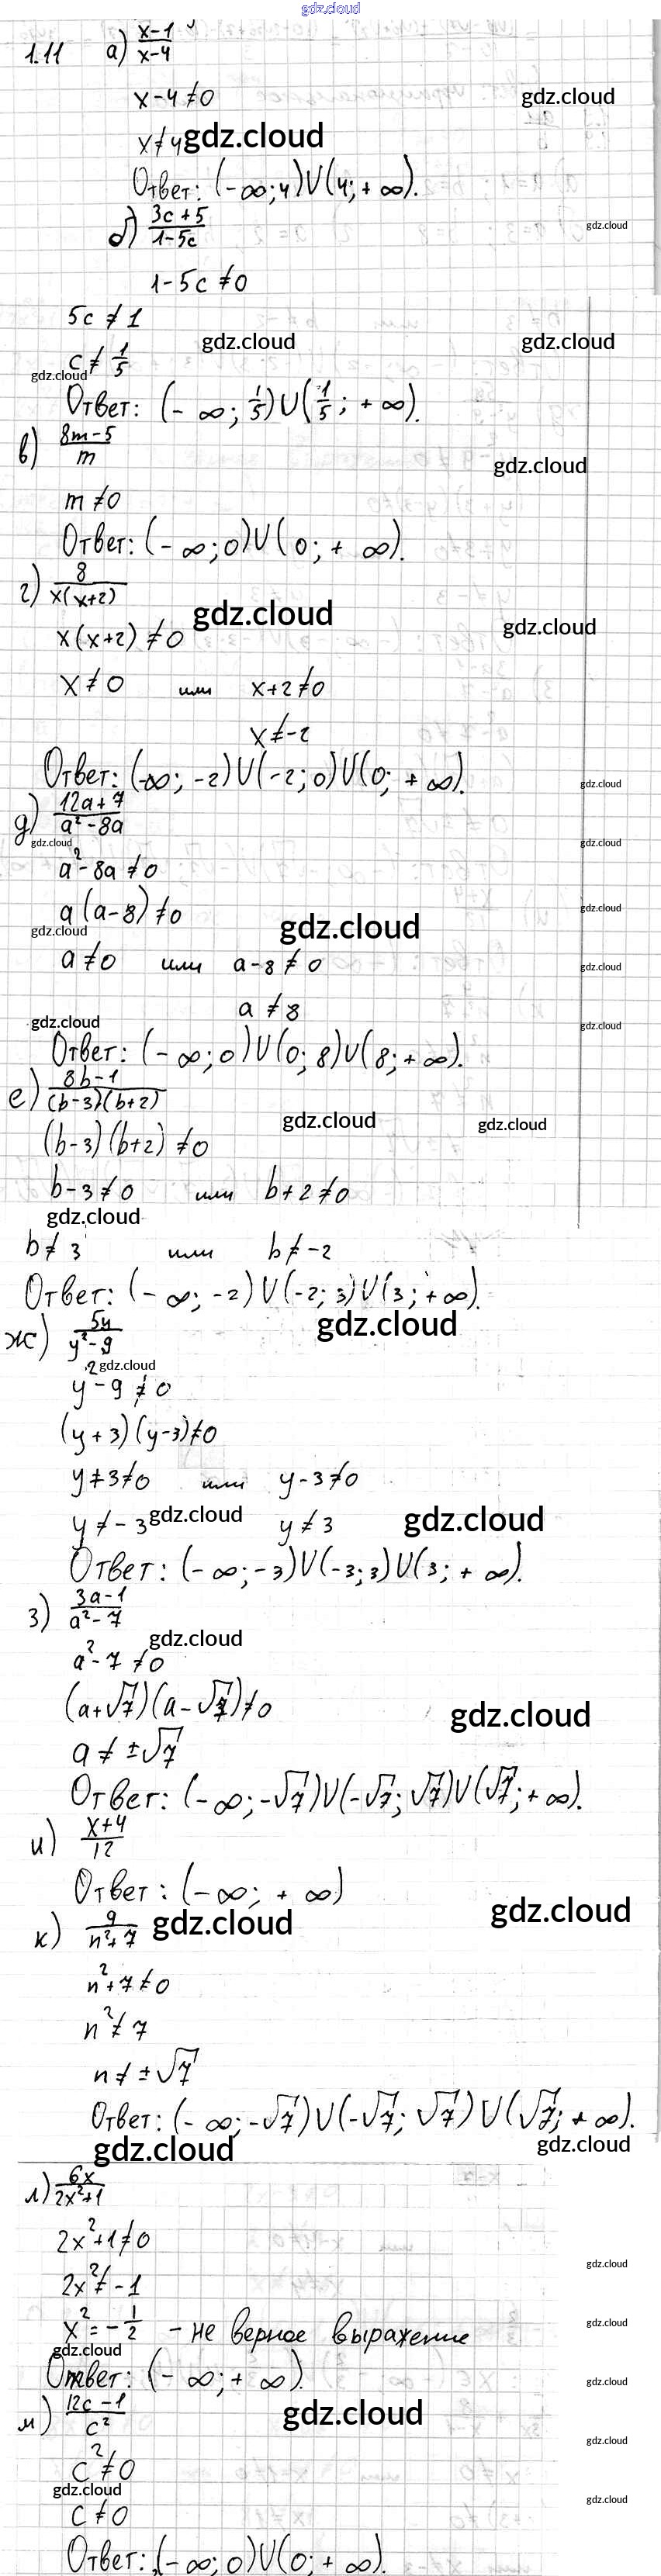 gdz.cloud
1.11 а) x-1/x-4
x-4≠0
x≠4 gdz.cloud
gdz.cloud
Ответ: (-∞;4)U(4;+∞).
б) 3c+5/1-5c
gdz.cloud
1-5c≠0
5c≠1
gdz.cloud gdz.cloud
c≠1/5
gdz.cloud
Ответ: (-∞;1/5)U(1/5;+∞).
в) 8m-5/m
gdz.cloud
m≠0
Ответ: (-∞;0)U(0;+∞).
г) 8/x(x+2)
gdz.cloud gdz.cloud
x(x+2)≠0
x≠0 или x+2≠0
x≠-2
Ответ: (-∞;-2)U(-2;0)U(0;+∞).
gdz.cloud
д) 12a+7/a²-8a
gdz.cloud gdz.cloud
a²-8a≠0
a(a-8)≠0
gdz.cloud
gdz.cloud gdz.cloud
a≠0 или a-8≠0
gdz.cloud
a≠8
gdz.cloud gdz.cloud
Ответ: (-∞;0)U(0;8)U(8;+∞).
е) 8b-1/(b-3)(b+2)
gdz.cloud gdz.cloud
(b-3)(b+2)≠0
b-3≠0 или b+2≠0
gdz.cloud
b≠3 или b≠-2
Ответ: (-∞;-2)U(-2;3)U(3;+∞).
ж) 5y/y²-9
gdz.cloud
gdz.cloud
y²-9≠0
(y+3)(y-3)≠0
y+3≠0 или y-3≠0
y≠-3 gdz.cloud y≠3 gdz.cloud
Ответ: (-∞;-3)U(-3;3)U(3;+∞).
з) 3a-1/a²-7
gdz.cloud
a²-7≠0
(a+√7)(a-√7)≠0
gdz.cloud
a≠±√7
Ответ: (-∞;-√7)U(-√7;√7)U(√7;+∞).
и) x+4/12
Ответ: (-∞;+∞)
gdz.cloud
к) 9/n²+7 gdz.cloud
n²+7≠0
n²≠7
n≠±√7
Ответ: (-∞;-√7)U(-√7;√7)U(√7;+∞).
gdz.cloud gdz.cloud
л) 6x/2x²+1
2x²+1≠0
gdz.cloud
2x²≠-1
x²=-1/2 - не верное выражение
gdz.cloud
gdz.cloud
Ответ: (-∞;+∞).
gdz.cloud
м) 12c-1/c²
gdz.cloud
gdz.cloud
c²≠0
gdz.cloud
gdz.cloud
c≠0
Ответ: (-∞;0)U(0;+∞).